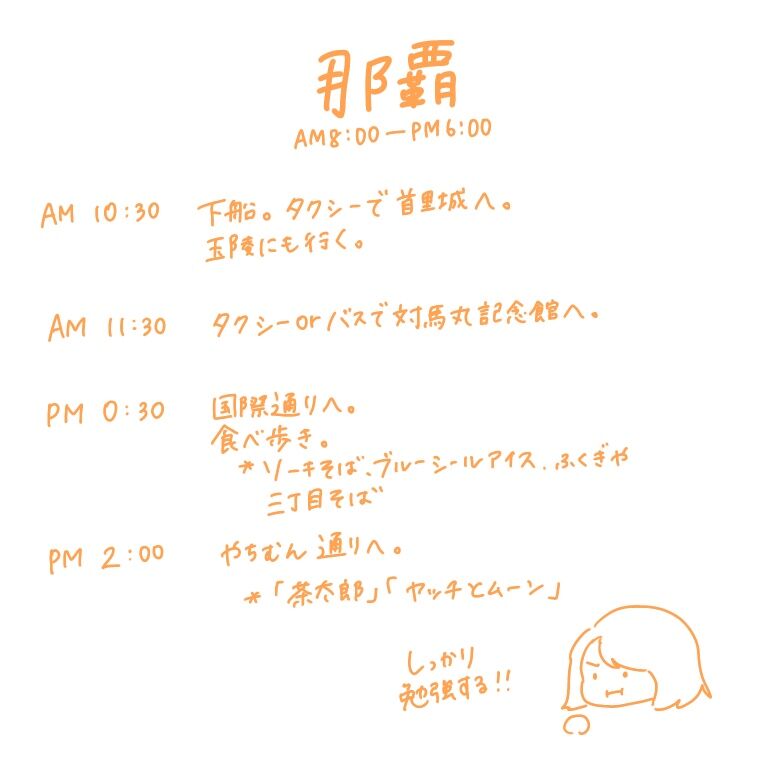 那覇
AM8:00ーPM6:00
AM 10:30 下船。タクシーで首里城へ。
玉陵にも行く。
AM 11:30 タクシーorバスで対馬丸記念館へ。
PM 0:30 国際通りへ。
食べ歩き。
*ソーキそば、ブルーシールアイス、ふくぎや
三丁目そば
PM 2:00 やちむん通りへ。
*「茶太郎」「ヤッチとムーン」
しっかり
勉強する!!